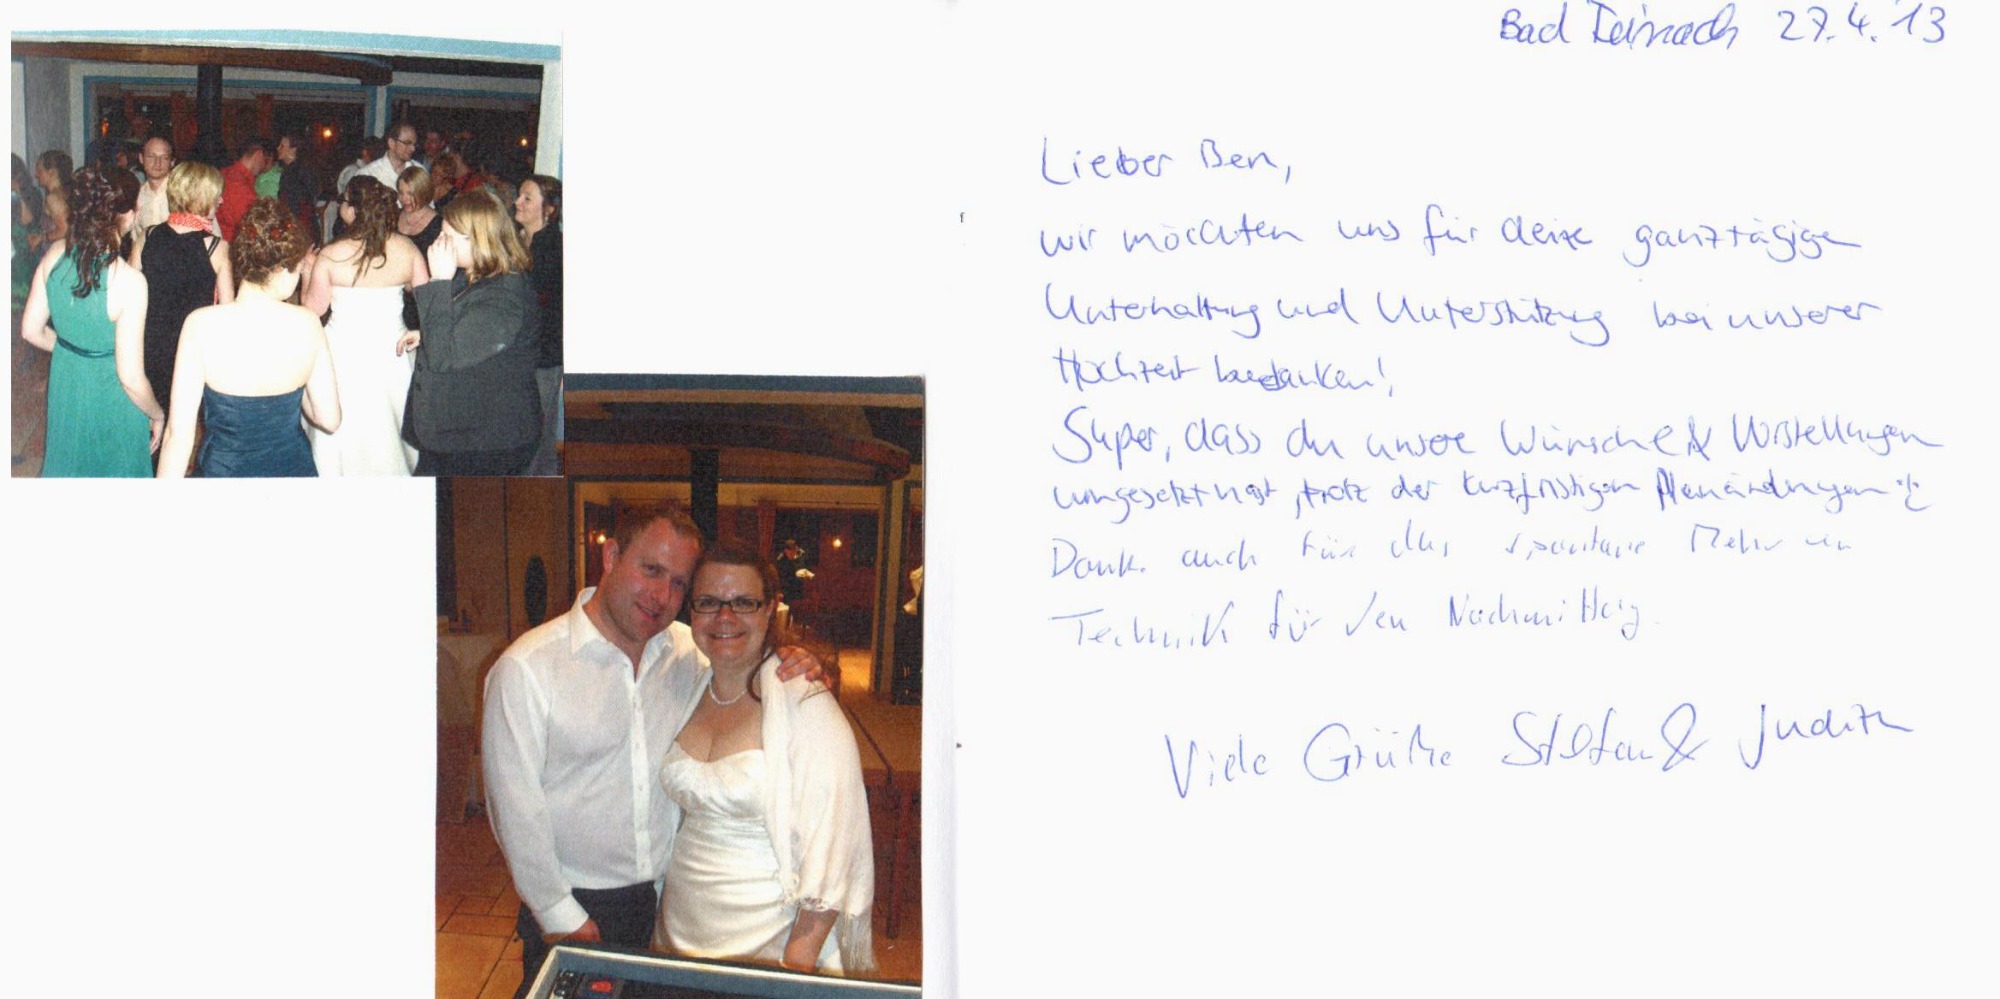 Bad Teinach 27.4.'13
Lieber Ben,
wir möchten uns für deine ganztägige
Unterhaltung und Unterstützung bei unserer
Hochzeit bedanken!
Super, dass du unsere Wünsche & Vorstellungen
umgesetzt hast, trotz der kurzfristigen Planänderungen
Dank auch für das spontane Mehr an
Technik für den Nachmittag.
Viele Grüße Stefan & Judith